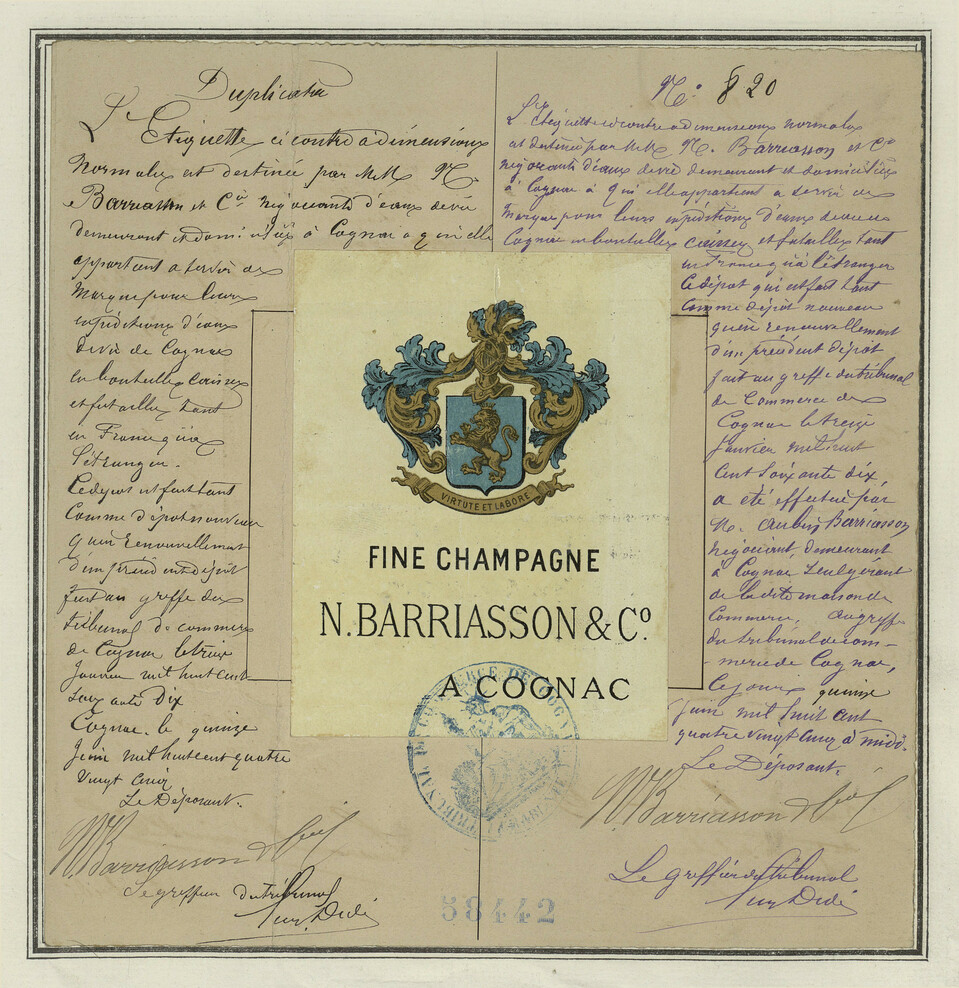 Duplicata
L'Etiquette ci contre a dimensions
Normales est destinée par MM N.
Barriasson et Cie négociants d'eaux de vie
demeurant et domiciliés à Cognac a qui elle
appartient a servir de
Marque pour leurs
expéditions d'eaux
de vie de Cognac
en bouteilles caisses
et futailles tant
en France qu'à
l'étranger.
Ce dépot est fait tant
Comme dépot nouveau
qu'en renouvellement
d'un précédent dépôt
fait au greffe du
tribunal de commerce
de Cognac le treize
Janvier mil huit cent
soixante dix
Cognac le quinze
Juin mil huit cent quatre
vingt cinq
Le Déposant.
N Barriasson & Cie
Le greffier du tribunal
N°. 820
L'Etiquette ci contre a dimensions normales
est destinée par MM N. Barriasson et Cie
négociants d'eaux de vie demeurant et domiciliés
à Cognac à qui elle appartient a servir de
Marque pour leurs expéditions d'eaux de vie de
Cognac en bouteilles caisses et futailles tant
en France qu'à l'étranger
Ce dépot qui est fait tant
comme dépôt nouveau
qu'en renouvellement
d'un précédent dépôt
fait au greffe du tribunal
de Commerce de
Cognac le treize
Janvier mil huit
cent soixante dix,
a été effectué par
M. Aubin Barriasson
négociant, demeurant
à Cognac seul gérant
de la dite maison de
Commerce, au greffe
du tribunal de com-
-merce de Cognac,
Ce jour quinze
juin mil huit cent
quatre vingt cinq à midi.
Le Déposant.
N. Barriasson & Cie
Le greffier du tribunal
VIRTUTE ET LABORE
FINE CHAMPAGNE
N. BARRIASSON & Co.
A COGNAC
TRIBUNAL DE COMMERCE DE COGNAC
58442